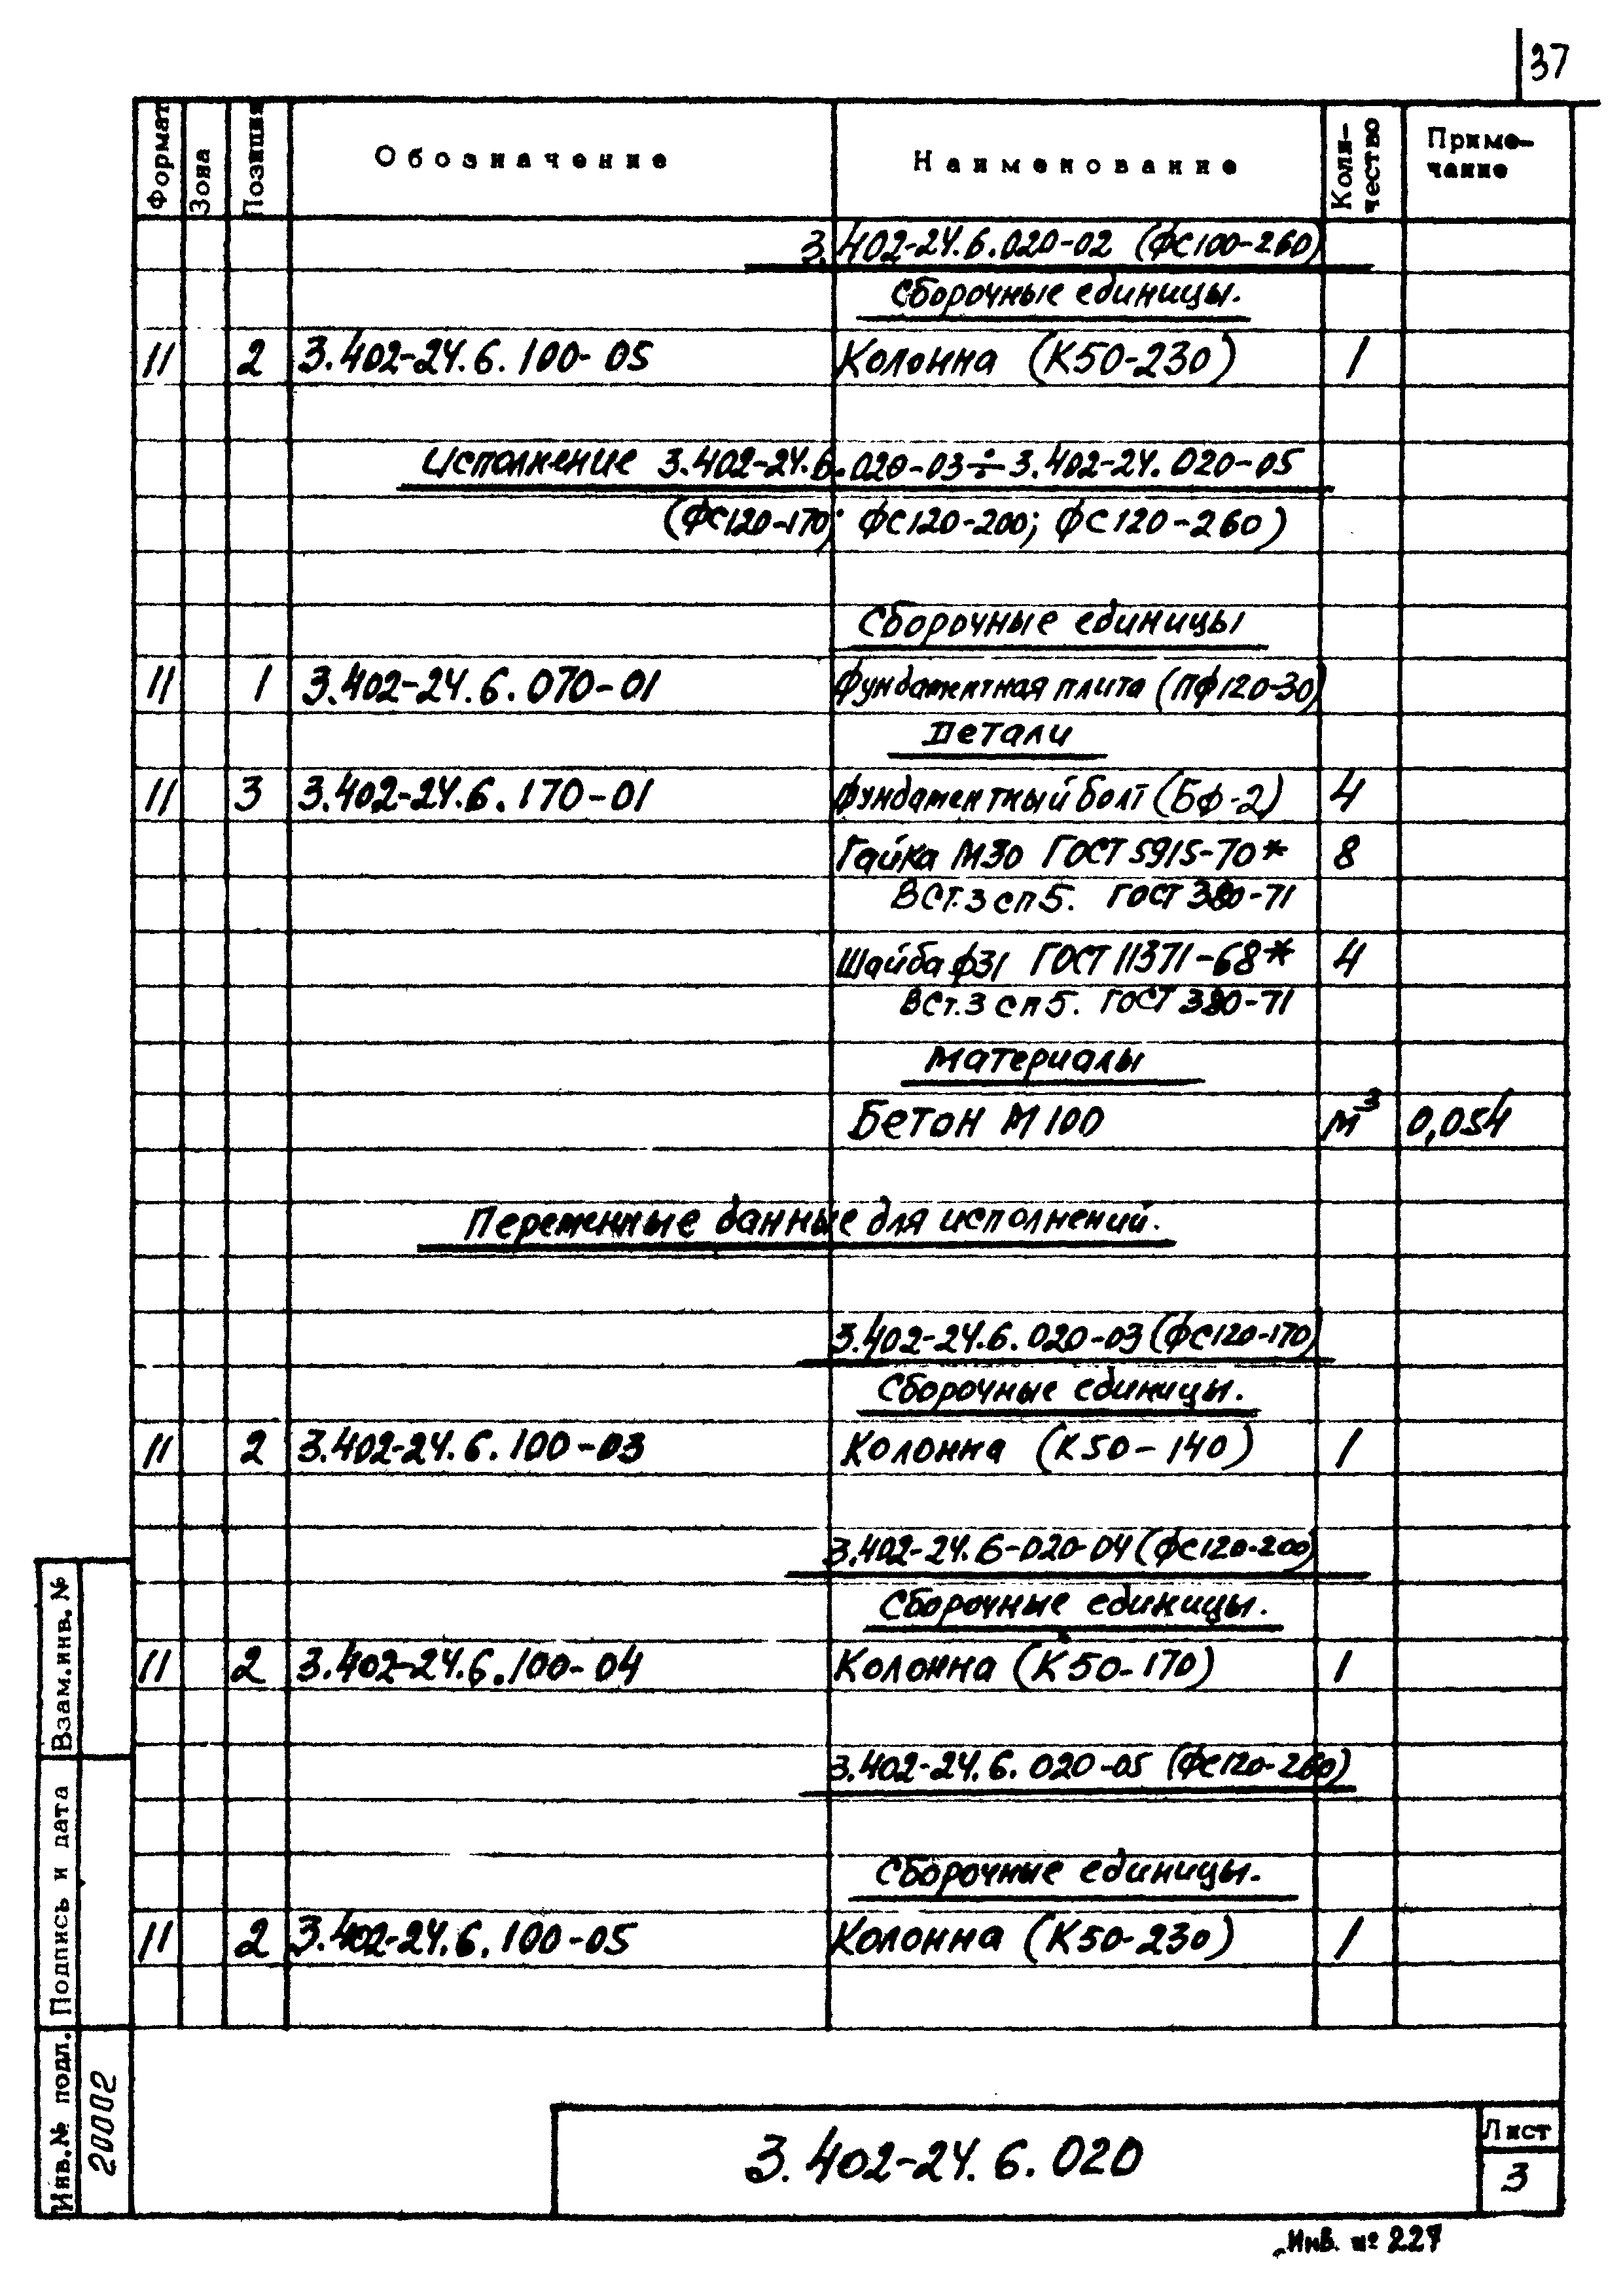 37
Формат Зона Позиция Обозначение Наименование Коли-чество Приме-чание
3.402-24.6.020-02 (ФС100-260)
Сборочные единицы.
11 2 3.402-24.6.100-05 Колонна (К50-230) 1
Исполнение 3.402-24.6.020-03÷3.402-24.020-05
(ФС120-170; ФС120-200; ФС120-260)
Сборочные единицы
11 1 3.402-24.6.070-01 Фундаментная плита (ПФ120-30)
Детали
11 3 3.402-24.6.170-01 Фундаментный болт (БФ-2) 4
Гайка М30 ГОСТ 5915-70* 8
ВСт.3 сп5. ГОСТ 380-71
Шайба ф31 ГОСТ 11371-68* 4
ВСт.3 сп5. ГОСТ 380-71
Материалы
Бетон М100 м³ 0,054
Переменные данные для исполнений.
3.402-24.6.020-03 (ФС120-170)
Сборочные единицы.
11 2 3.402-24.6.100-03 Колонна (К50-140) 1
3.402-24.6-020-04 (ФС120-200)
Сборочные единицы.
11 2 3.402-24.6.100-04 Колонна (К50-170) 1
3.402-24.6.020-05 (ФС120-260)
Сборочные единицы.
11 2 3.402-24.6.100-05 Колонна (К50-230) 1
Взам.инв.№
Подпись и дата
Инв.№ подл.
20002
3.402-24.6.020
Лист
3
Инв. № 227